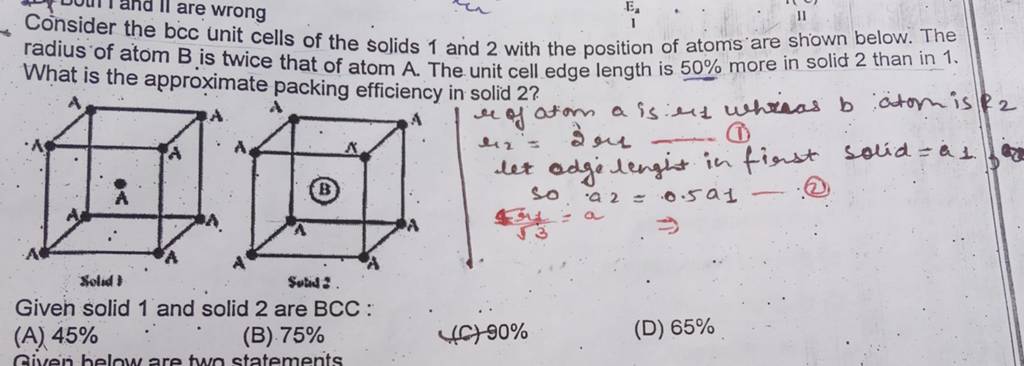 Both I and II are wrong
E
I
II
Consider the bcc unit cells of the solids 1 and 2 with the position of atoms are shown below. The
radius of atom B is twice that of atom A. The unit cell edge length is 50% more in solid 2 than in 1.
What is the approximate packing efficiency in solid 2?
A A A A A A A A A
Solid 1
A A A A B A A A A
Solid 2.
r of atom a is r1 whereas b atom is r2
r2 = 2r1 —— ①
let edge lenght in first solid = a1
so a2 = 0.5a1 — ②
4r1/√3 = a ⇒
Given solid 1 and solid 2 are BCC :
(A) 45% (B) 75% (C) 90% (D) 65%
Given below are two statements